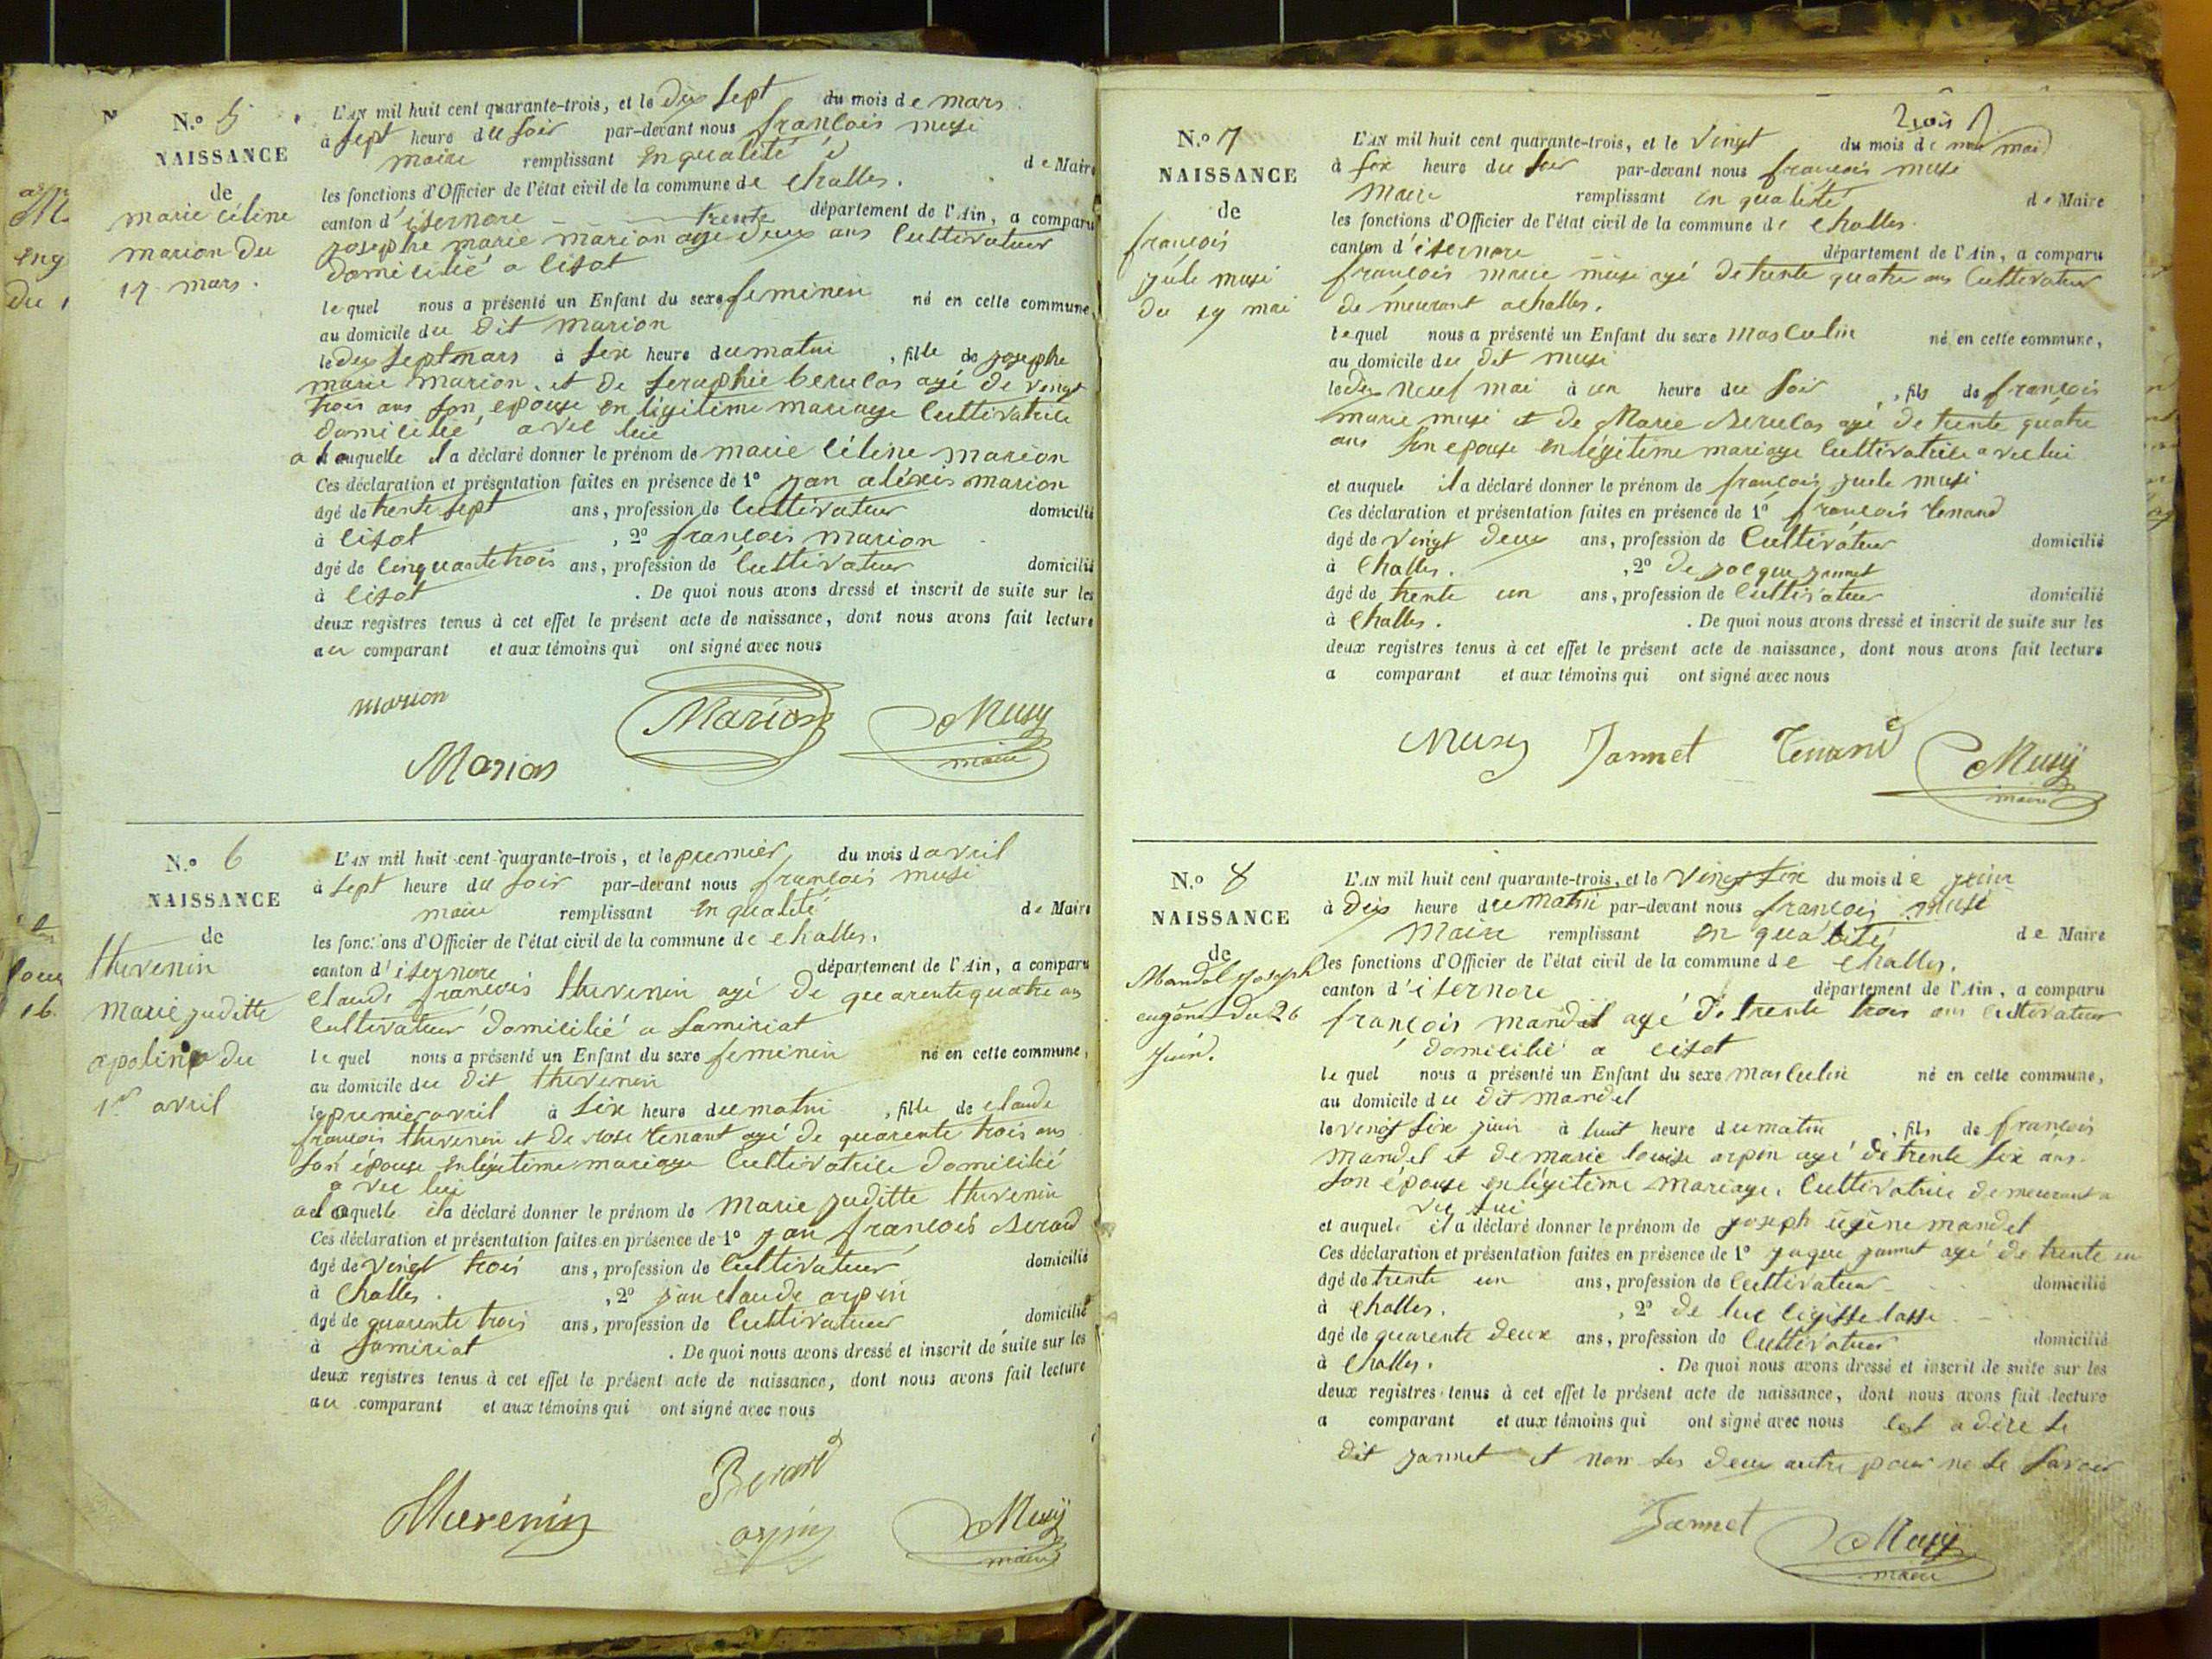 N.º 5
NAISSANCE
de
marie céline
marion du
17 mars.
L'AN mil huit cent quarante-trois, et le dix sept du mois de mars
à sept heure du soir par-devant nous françois musi
maire remplissant en qualité de Maire
les fonctions d'Officier de l'état civil de la commune de challes.
canton d'isernore département de l'Ain, a comparu
trente
josephe marie marion agé deux ans Cultivateur
domicilié a cisot
lequel nous a présenté un Enfant du sexe feminin né en cette commune,
au domicile du dit marion
le dix sept mars à six heure du matin, fille de josephe
marie marion, et de seraphie berulas agé de vingt
trois ans son epouse en légitime mariage Cultivatrice
domicilié avec lui
a laquelle il a déclaré donner le prénom de marie Céline marion
Ces déclaration et présentation faites en présence de 1º jan aléxis marion
âgé de trente sept ans, profession de Cultivateur domicilié
à cisot, 2º françois marion
âgé de cinquante trois ans, profession de Cultivateur domicilié
à cisot. De quoi nous avons dressé et inscrit de suite sur les
deux registres tenus à cet effet le présent acte de naissance, dont nous avons fait lecture
au comparant et aux témoins qui ont signé avec nous
marion
Marion
Musy
maire
Marion
N.º 6
NAISSANCE
de
thevenin
marie juditte
apoline du
1er avril
L'AN mil huit cent quarante-trois, et le premier du mois d avril
à sept heure du soir par-devant nous françois musi
maire remplissant en qualité de Maire
les fonctions d'Officier de l'état civil de la commune de challes.
canton d'isernore département de l'Ain, a comparu
claude françois thevenin agé de quarente quatre ans
Cultivateur domicilié a samiriat
lequel nous a présenté un Enfant du sexe feminin né en cette commune,
au domicile du dit thevenin
le premier avril à six heure du matin, fille de claude
françois thevenin et de rose tenant agé de quarente trois ans
son épouse en légitime mariage Cultivatrice domicilié
avec lui
a laquelle il a déclaré donner le prénom de marie juditte thevenin
Ces déclaration et présentation faites en présence de 1º jan françois Berard
âgé de vingt trois ans, profession de Cultivateur domicilié
à Challes., 2º jan claude arpin
âgé de quarente trois ans, profession de Cultivateur domicilié
à samiriat. De quoi nous avons dressé et inscrit de suite sur les
deux registres tenus à cet effet le présent acte de naissance, dont nous avons fait lecture
au comparant et aux témoins qui ont signé avec nous
Berard
Thevenin
arpin
Musy
maire
N.º 7
NAISSANCE
de
françois
jule musi
du 19 mai
L'AN mil huit cent quarante-trois, et le vingt du mois de mai
à six heure du soir par-devant nous françois musi
Maire remplissant en qualité de Maire
les fonctions d'Officier de l'état civil de la commune de challes.
canton d'isernore département de l'Ain, a comparu
françois marie musi agé de trente quatre ans Cultivateur
de meurant a challes.
lequel nous a présenté un Enfant du sexe masculin né en cette commune,
au domicile du dit musi
le dix neuf mai à un heure du soir, fils de françois
marie musi et de Marie Berulas agé de trente quatre
ans son epouse en légitime mariage Cultivatrice avec lui
et auquel il a déclaré donner le prénom de françois juele musi
Ces déclaration et présentation faites en présence de 1º françois tenand
âgé de vingt deux ans, profession de Cultivateur domicilié
à Challes., 2º de jacque jannet
âgé de trente un ans, profession de Cultivateur domicilié
à challes. De quoi nous avons dressé et inscrit de suite sur les
deux registres tenus à cet effet le présent acte de naissance, dont nous avons fait lecture
a comparant et aux témoins qui ont signé avec nous
Musy Jannet Tenand
Musy
maire
N.º 8
NAISSANCE
de
Mandel joseph
eugène du 26
juin.
L'AN mil huit cent quarante-trois, et le vingt six du mois de juin
à dix heure du matin par-devant nous françois musi
Maire remplissant en qualité de Maire
les fonctions d'Officier de l'état civil de la commune de challes.
canton d'isernore département de l'Ain, a comparu
françois mandel agé de trente trois ans cultivateur
domicilié a cisot
lequel nous a présenté un Enfant du sexe masculin né en cette commune,
au domicile du dit mandel
le vingt six juin à huit heure du matin, fils de françois
mandel et de marie louise arpin agé de trente six ans
son épouse en légitime mariage, Cultivatrice demeurant a
vec lui
et auquel il a déclaré donner le prénom de joseph eugène mandel
Ces déclaration et présentation faites en présence de 1º jaque jannet agé de trente un
âgé de trente un ans, profession de Cultivateur domicilié
à challes., 2º de luc
âgé de quarente deux ans, profession de Cultivateur domicilié
à challes. De quoi nous avons dressé et inscrit de suite sur les
deux registres tenus à cet effet le présent acte de naissance, dont nous avons fait lecture
a comparant et aux témoins qui ont signé avec nous cest a dire le
dit jannet et non les deux autre pour ne le savoir
Jannet
Musy
maire